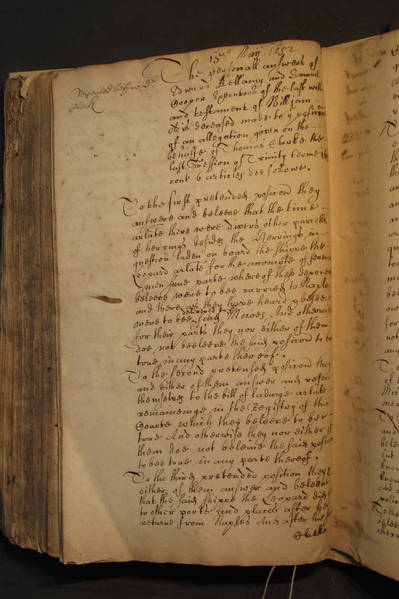 15th May 1652
The personall answeres of
Edward Bellamy and Samuel
Cooper Executors of the last will
and testament of William
deceased made to ye positions
of an allegation given on the
behalfe of Thomas Clarke the
last Session of Trinity terme
6 articles as followe.
Repeated before
Clerk
To the first pretended position they
answere and beleeve that the time
arlate there were divers other parcells
of herrings besides the Herrings in
question laden on board the shippe the
Leopard arlate for the accompte of severall
men some parte whereof these deponents
beleeve were to bee carried to Naples
and the rest as they have heard & beleeve
were to bee And otherwise
for their parts they nor either of them
doe not beleeve the said position to bee
true in any parte thereof.
To the second pretended position they
and either of them answer and referr
themselves to the bill of ladinge arlate
remaineinge in the Registry of this
Courte which they beleeve to bee
true And otherwise they nor either of
them doe not beleeve the said position
to bee true in any parte thereof.
To the third pretended position they &
either of them answer and beleeve
that the said shippe the Leopard did
to other ports and places after her
returne from Naples And after